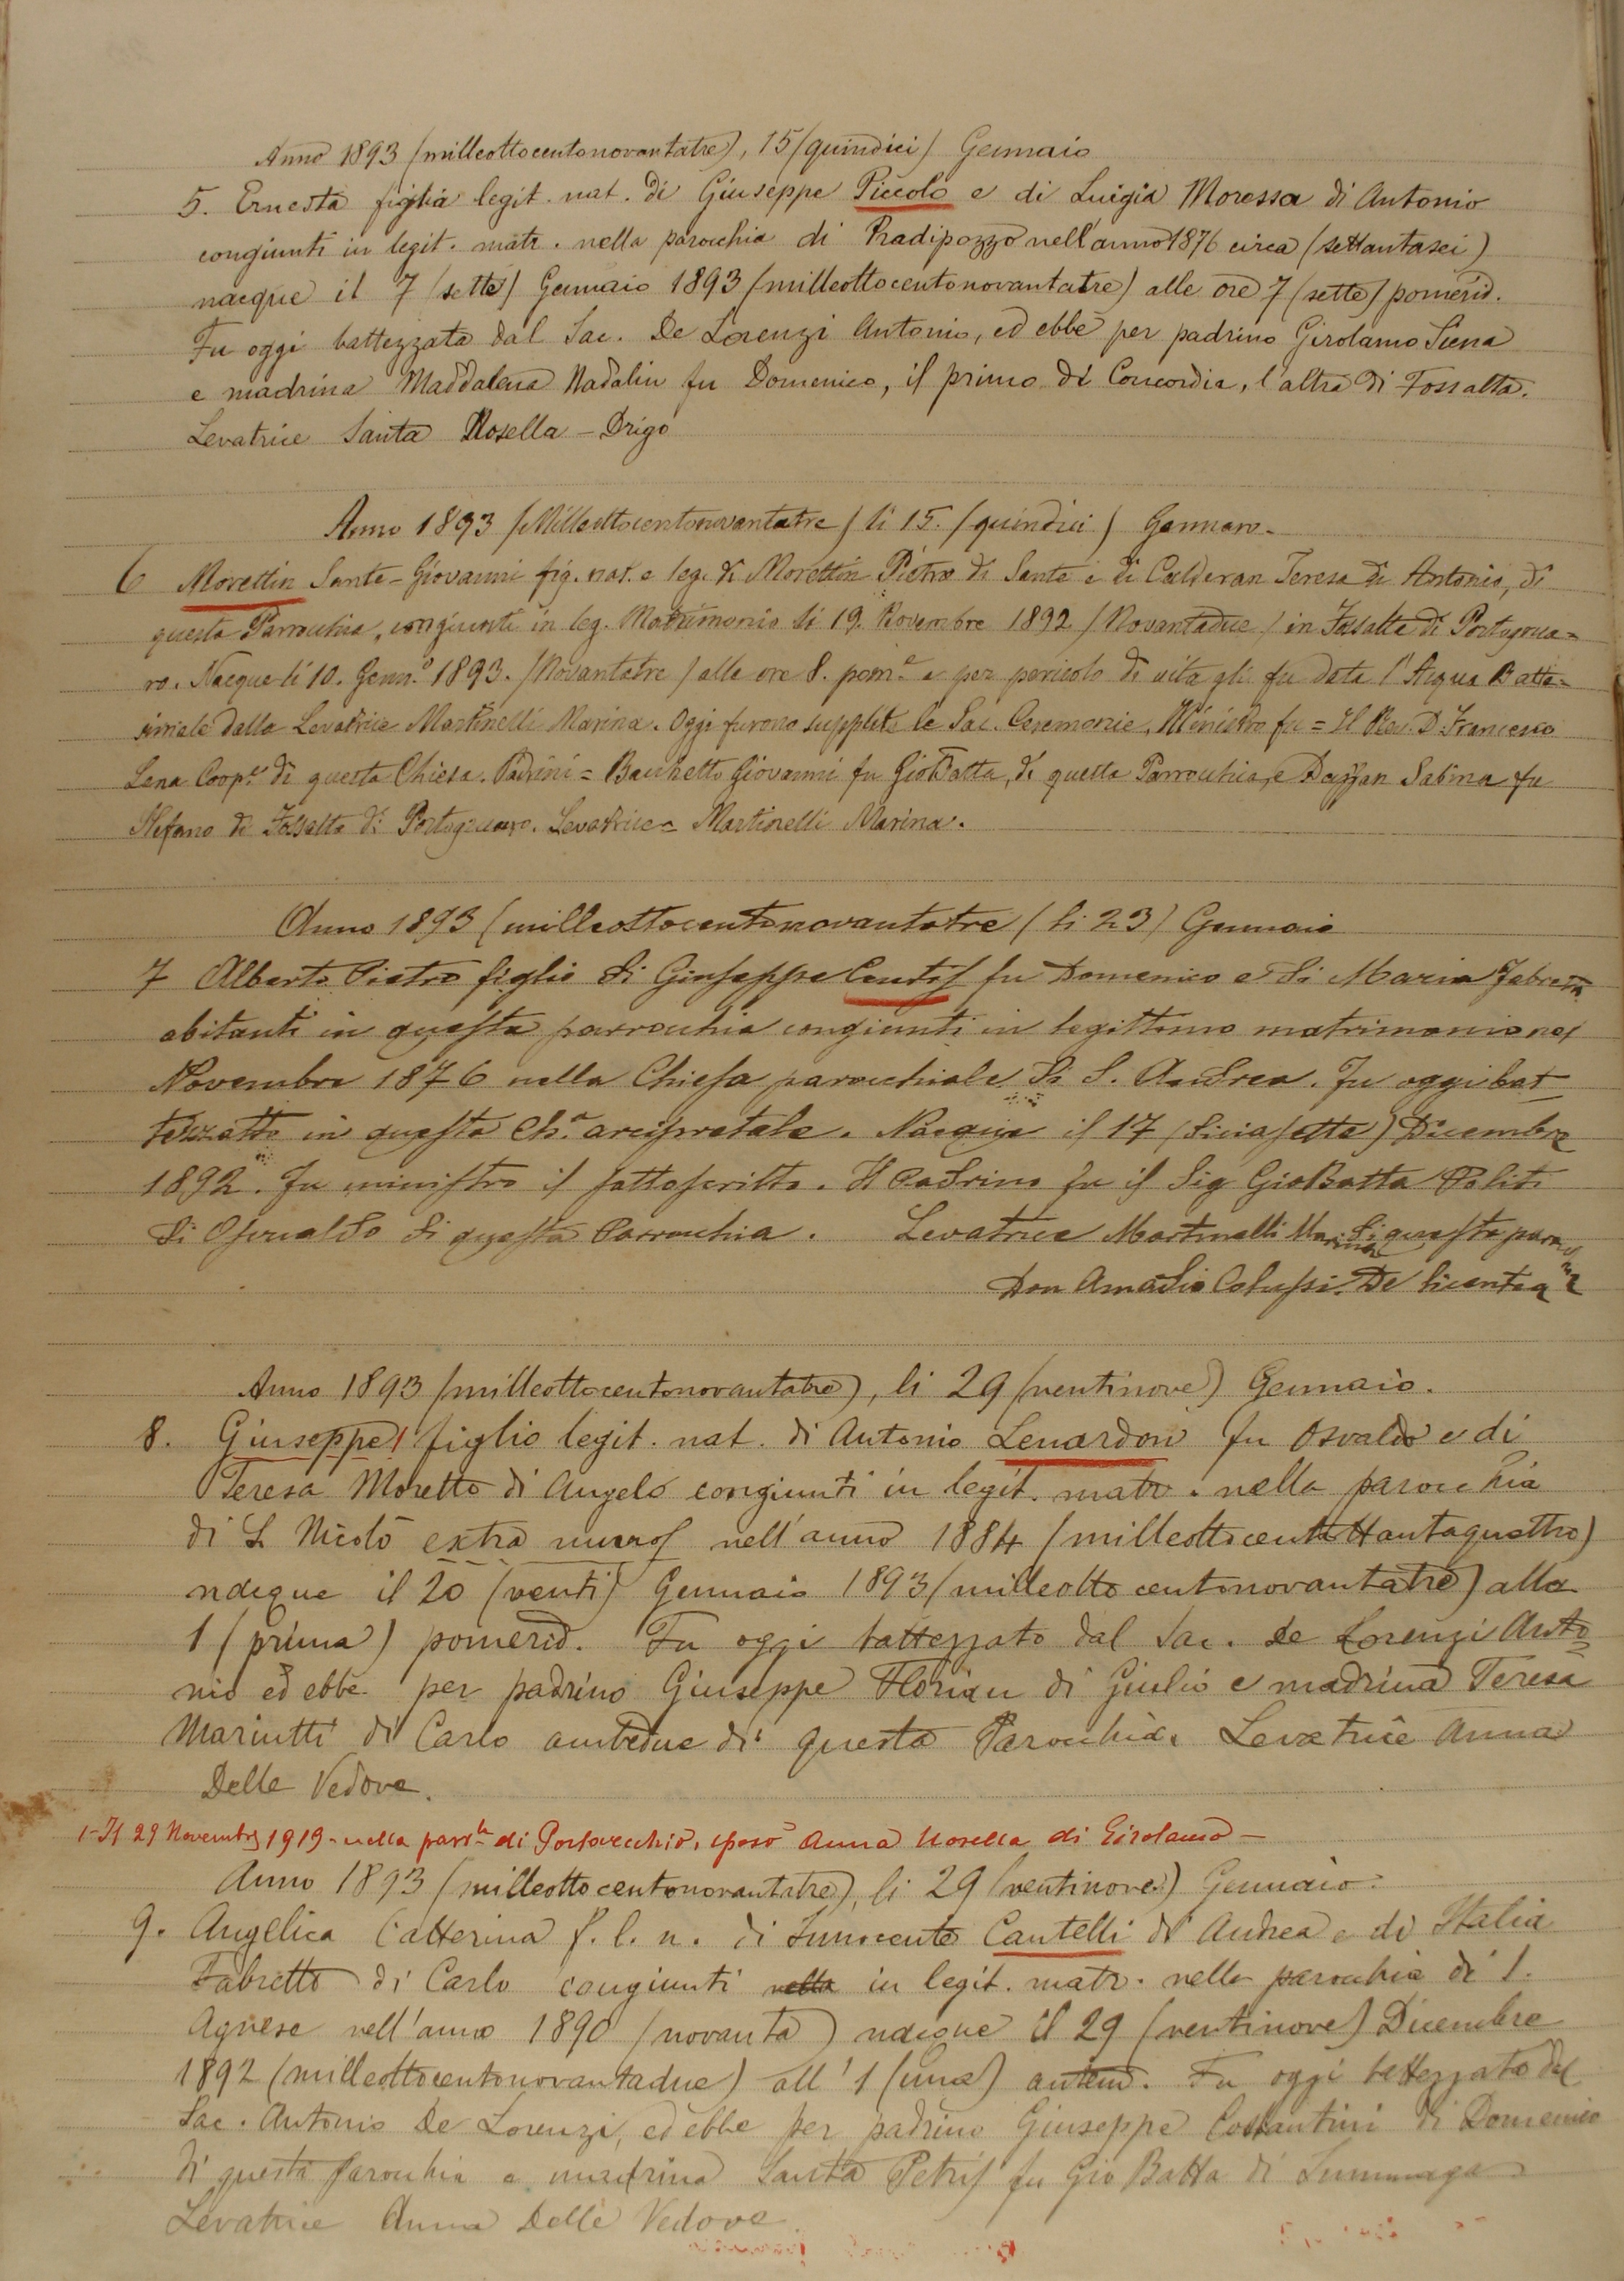 Anno 1893 (milleottocentonovantatre), 15 (quindici) Gennaio
5. Ernesta figlia legit. nat. di Giuseppe Piccolo e di Luigia Moressa di Antonio
congiunti in legit. matr. nella parocchia di Pradipozzo nell'anno 1876 circa (settantasei)
nacque il 7 (sette) Gennaio 1893 (milleottocentonovantatre) alle ore 7 (sette) pomerid.
Fu oggi battezzata dal Sac. De Lorenzi Antonio, ed ebbe per padrino Girolamo Siena
e madrina Maddalena Nadalin fu Domenico, il primo di Concordia, l'altra di Fossalta.
Levatrice Santa Nosella - Drigo
Anno 1893 (Milleottocentonovantatre) li 15. (quindici) Gennaro.
6 Morettin Sante-Giovanni fig. nat. e leg. di Morettin Pietro di Sante e di Calderan Teresa di Antonio, di
questa Parrocchia, congiunti in leg. Matrimonio li 19. Novembre 1892 (Novantadue) in Fossalta di Portogrua=
ro. Nacque li 10. Genn.o 1893. (Novantatre) alle ore 8. pom.e e per pericolo di vita gli fu data l'Acqua Batte=
simale dalla Levatrice Martinelli Marina. Oggi furono supplite le Sac. Ceremonie. Ministro fu = Il Rev. D. Francesco
Lena Coop.re di questa Chiesa. Padrini = Bacchetto Giovanni fu GioBatta, di questa Parrocchia, e Dazzan Sabina fu
Stefano di Fossalta di Portogruaro. Levatrice = Martinelli Marina.
Anno 1893 (milleottocentonovantatre (li 23) Gennaio
7 Alberto Pietro figlio di Giuseppe Centis fu Domenico e di Maria Fabretti
abitanti in questa parrocchia congiunti in legittimo matrimonio nel
Novembre 1876 nella Chiesa parocchiale di S. Andrea. Fu oggi bat
tezzatto in questa Ch.a arcipretale. Nacque il 17 (diciasette) Dicembre
1892. Fu ministro il sottoscritto. Il Padrino fu il Sig GioBatta Politi
di Osvaldo di questa Parrochia. Levatrice Martinelli Marina di questa paroc
Don Amadio Colussi. De licentia
Anno 1893 (milleottocentonovantatre), li 29 (ventinove) Gennaio.
8. Giuseppe 1 figlio legit. nat. di Antonio Lenardon fu Osvaldo e di
Teresa Moretto di Angelo congiunti in legit. matr. nella parocchia
di S. Nicolò extra muros nell'anno 1884 (milleottocentottantaquattro)
nacque il 20 (venti) Gennaio 1893 (milleottocentonovantatre) alla
1 (prima) pomerid. Fu oggi battezzato dal Sac. De Lorenzi Anto=
nio ed ebbe per padrino Giuseppe Florian di Giulio e madrina Teresa
Mariutti di Carlo ambedue di questa Parocchia. Levatrice Anna
Delle Vedove.
1 - Il 29 Novembre 1919 - nella parr.le di Portovecchio, sposò Anna Nosella di Girolamo -
Anno 1893 (milleottocentonovantatre), li 29 (ventinove) Gennaio.
9. Angelica Catterina f. l. n. di Innocente Cantelli di Andrea e di Italia
Fabretto di Carlo congiunti nella in legit. matr. nella parocchia di S.
Agnese nell'anno 1890 (novanta) nacque il 29 (ventinove) Dicembre
1892 (milleottocentonovantadue) all'1 (una) antim. Fu oggi battezzata dal
Sac. Antonio De Lorenzi, ed ebbe per padrino Giuseppe Costantini di Domenico
di questa parocchia e madrina Santa Petris fu Gio Batta di Summaga
Levatrice Anna Delle Vedove.